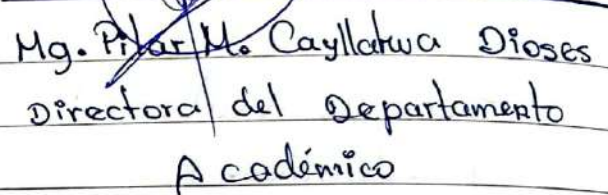 Mg. Pilar M. Cayllahua Dioses
Directora del Departamento
Académico